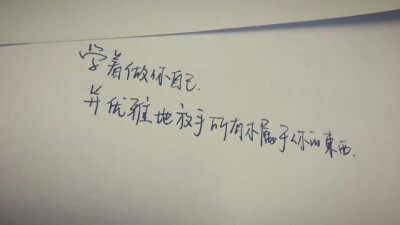 学着做你自己.
并优雅地放手所有不属于你的東西.